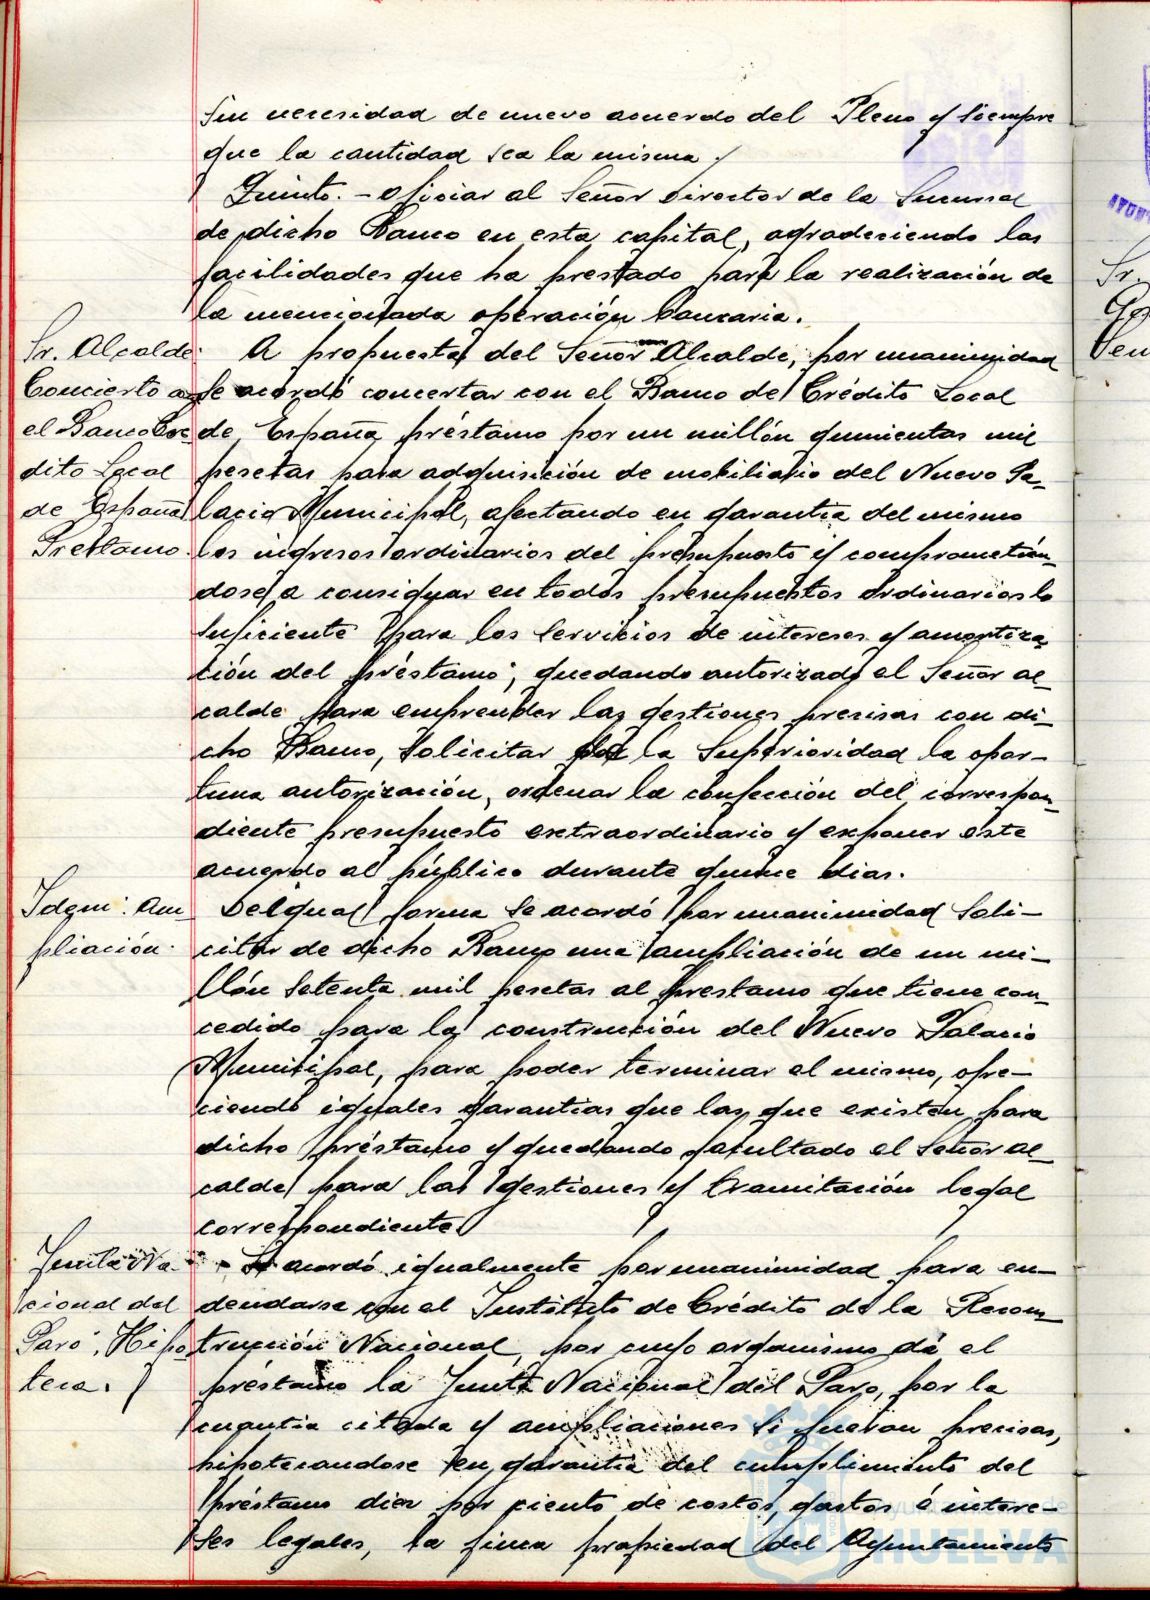 sin necesidad de nuevo acuerdo del Pleno y siempre
que la cantidad sea la misma.
Quinto.- Oficiar al Señor Director de la Sucursal
de dicho Banco en esta capital, agradeciendo las
facilidades que ha prestado para la realización de
la mencionada operación bancaria.
Sr. Alcalde.
Concierto
el Banco Cre
dito Local
de España
Prestamo.
A propuesta del Señor Alcalde, por unanimidad
se acordó concertar con el Banco de Crédito Local
de España préstamo por un millón quinientas mil
pesetas para adquisición de mobiliario del Nuevo Pa-
lacio Municipal, afectando en garantia del mismo
los ingresos ordinarios del presupuesto y comprometién-
dose a consignar en todos presupuestos ordinarios lo
suficiente para los servicios de intereses y amortiza-
ción del préstamo; quedando autorizado el Señor al-
calde para emprender las gestiones precisas con di-
cho Banco, solicitar la Superioridad la opor-
tuna autorización, ordenar la confección del correspon-
diente presupuesto extraordinario y exponer este
acuerdo al público durante quince dias.
Idem. Am
pliación.
De igual forma se acordó por unanimidad soli-
citar de dicho Banco una ampliación de un mi-
llón setenta mil pesetas al prestamo que tiene con-
cedido para la construcción del Nuevo Palacio
Municipal, para poder terminar el mismo, ofre-
ciendo iguales garantias que las que existen para
dicho préstamo y quedando facultado el Señor al-
calde para las gestiones y tramitación legal
correspondiente.
Junta Na-
cional del
Paro, Hipo
teca.
Se acordó igualmente por unanimidad para en-
deudarse con el Instituto de Crédito de la Recons-
trucción Nacional, por cuyo organismo dá el
préstamo la Junta Nacional del Paro, por la
cuantia citada y ampliaciones si fueran precisas,
hipotecandose en garantia del cumplimiento del
préstamo diez por ciento de costos, gastos é intere-
ses legales, la finca propiedad del Ayuntamiento
Ayuntamiento de
HUELVA
Sr.